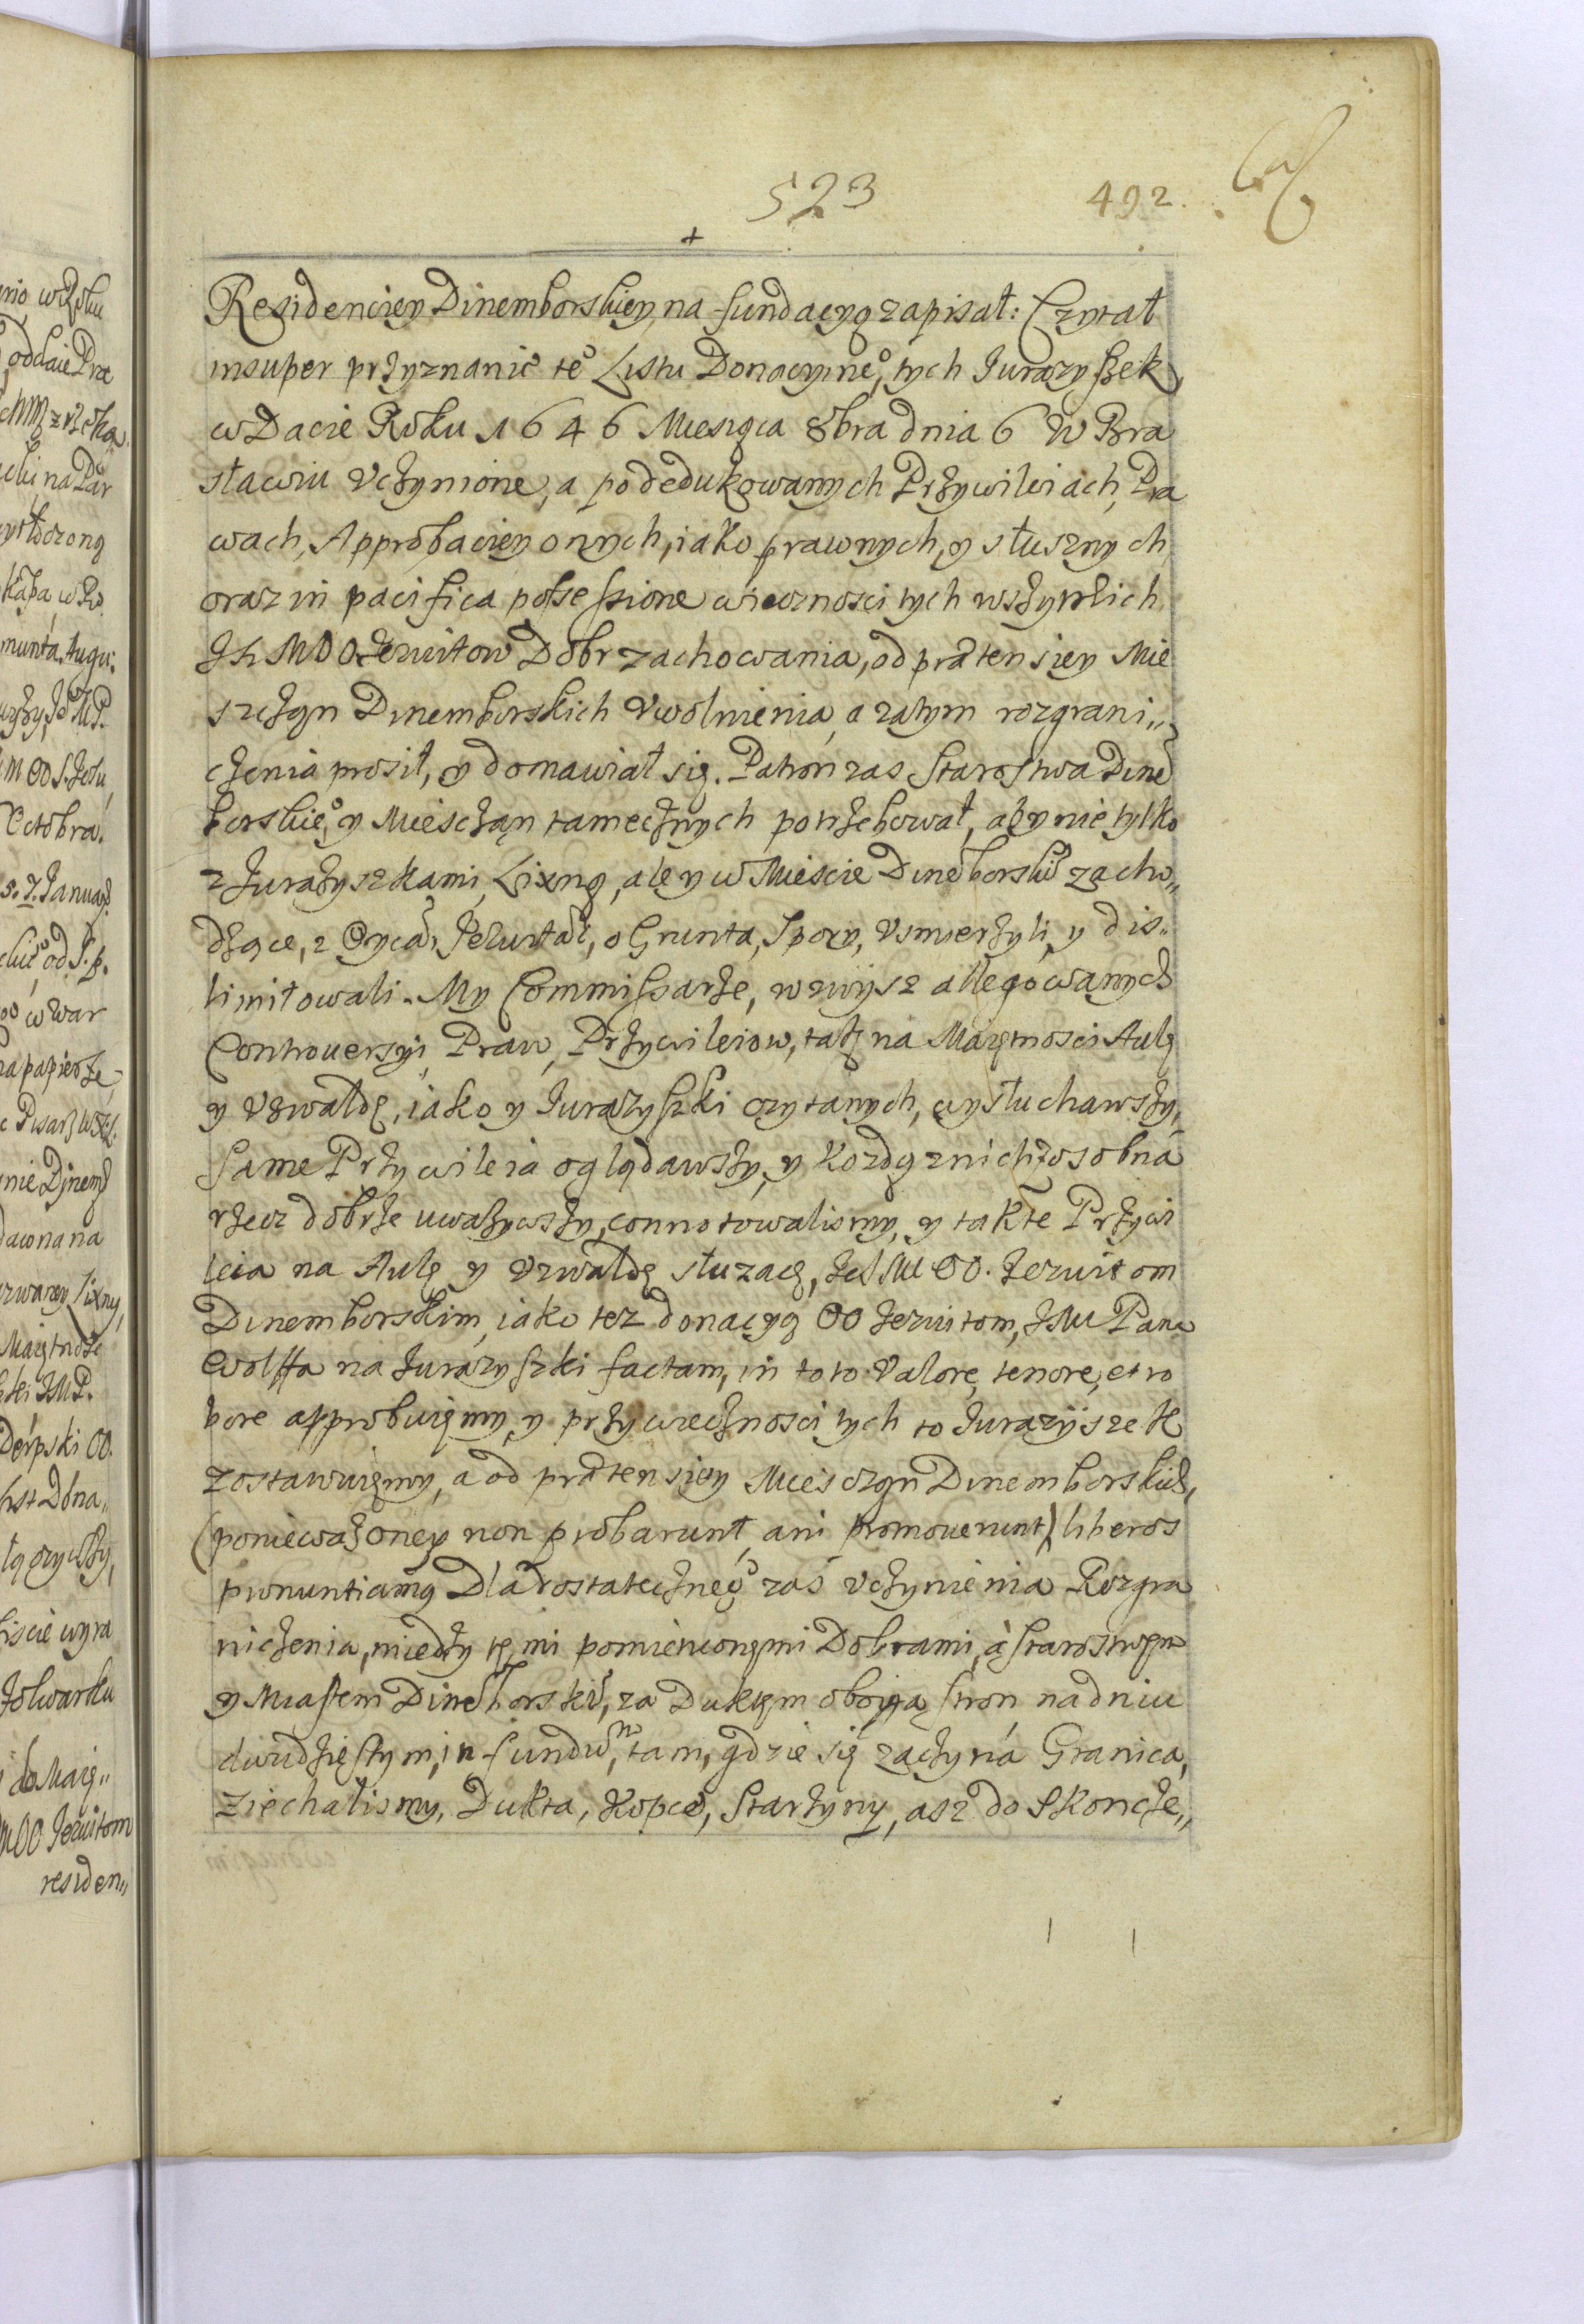 523
492.
Residenciey Dinemborskiey, na fundacyą zapisał: Czytał
insuper przyznanie te° Listu Donacyine°, tych Jurazyszek,
w Dacie Roku 1646 Miesiąca 8bra dnia 6 W Bra
sławiu vczynione, a po dedukowanych Przywileiach, Pra
wach, Approbaciey onych, iako prawnych, y słusznych
oraz in pacifica possessione wiecznosci tych wszytkich
Ich MOO Jezuitow Dobr zachowania, od prætensiey Mie
szczan Dinemborskich vwolnienia, a zatym rozgrani„
czenia prosił, y domawiał się. Patron zas Starostwa Dine
borskie°, y Miesczan tamecznych potrzebował, aby nie tylko
z Jurazyszkami, Lixną, ale y w Miescie Dineborski zacho„
dzące, z Oycami Jezuitami, o Grunta, Spory, vsmierzyli, y dis„
limitowali. My Commissarze, wzwysz allegowanych
Controuersyi, Praw, Przywileiow, tak na Maiętnosci Aulę
y Vzwałdę, iako y Jurazyszki czytanych, wysłuchawszy,
same Przywileia oglądawszy, y Kozdą z nich z osobna
rzecz dobrze uwazywszy, connotowalismy, y tak te Przywi
leia na Aulę y Vzwałdę słuzące, Ich MOO. Jezuitom
Dinemborskim, iako tez donacyą OO Jezuitom, JM Pana
Wolffa na Jurazyszki factam, in toto valore, tenore, et ro
bore approbuięmy, y przy wiecznosci tych to Jurazyszek
zostawuięmy, a od prætensiey Miesczan Dinemborskich,
(poniewaz oney non probarunt, ani promouerunt) liberos
pronuntiamy Dla dostateczne° zaś vczynienia Rozgra
niczenia, miedzy tęmi pomienionęmi Dobrami, à Starostwęm
y Miastem Dineborski, za Duktęm oboyga stron na dniu
dwudziestym, in fundum, tam, gdzie się zaczyna Granica,
Ziechalismy, Dukta, Kopce, Starzyny, asz do Skoncze„